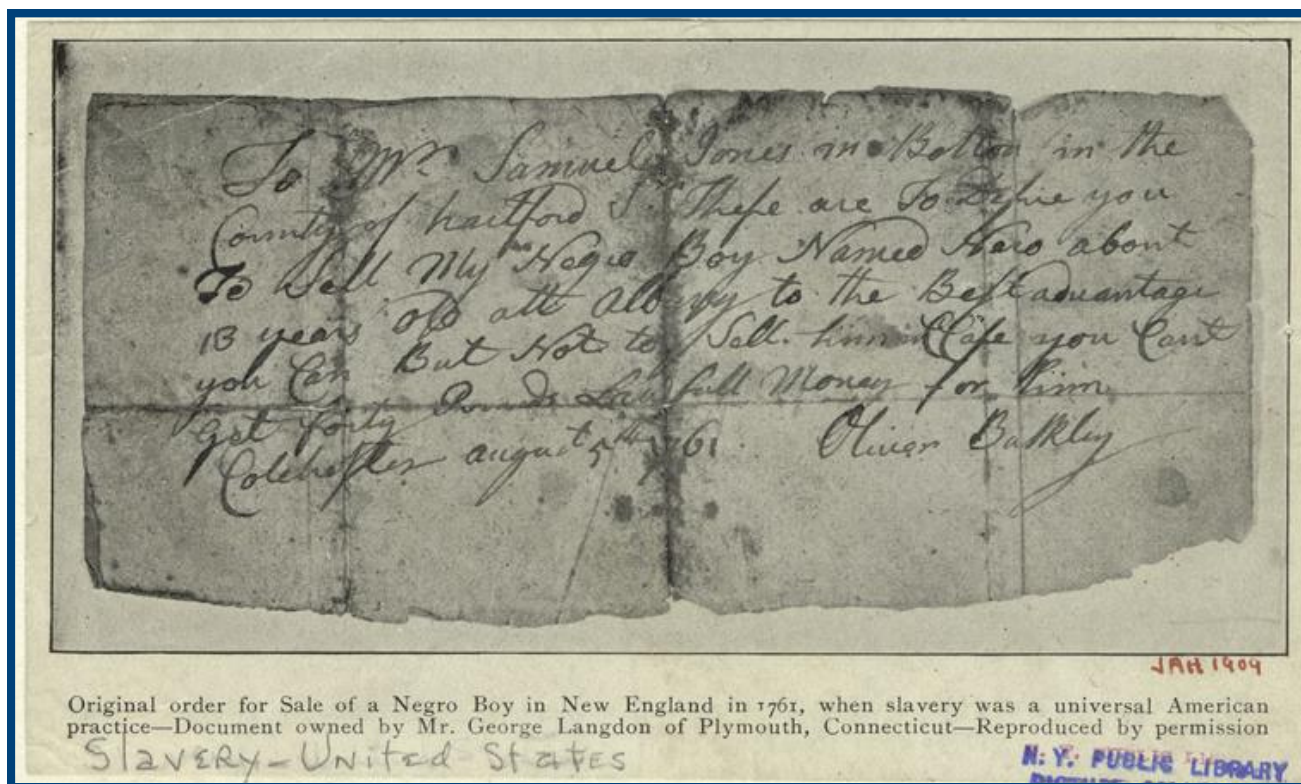 To Mr Samuel Jones in Bolton in the
County of hartford Sr These are To Desire you
To Sell My Negro Boy Named Nero about
13 years old att Albany to the Best advantage
you Can But Not to Sell him in Case you Cant
get forty Pounds Lawfull Money for him
Colchester august 5th 1761 Oliver Bulkley
JAH 1909
Original order for Sale of a Negro Boy in New England in 1761, when slavery was a universal American
practice—Document owned by Mr. George Langdon of Plymouth, Connecticut—Reproduced by permission
Slavery-United States
N. Y. PUBLIC LIBRARY